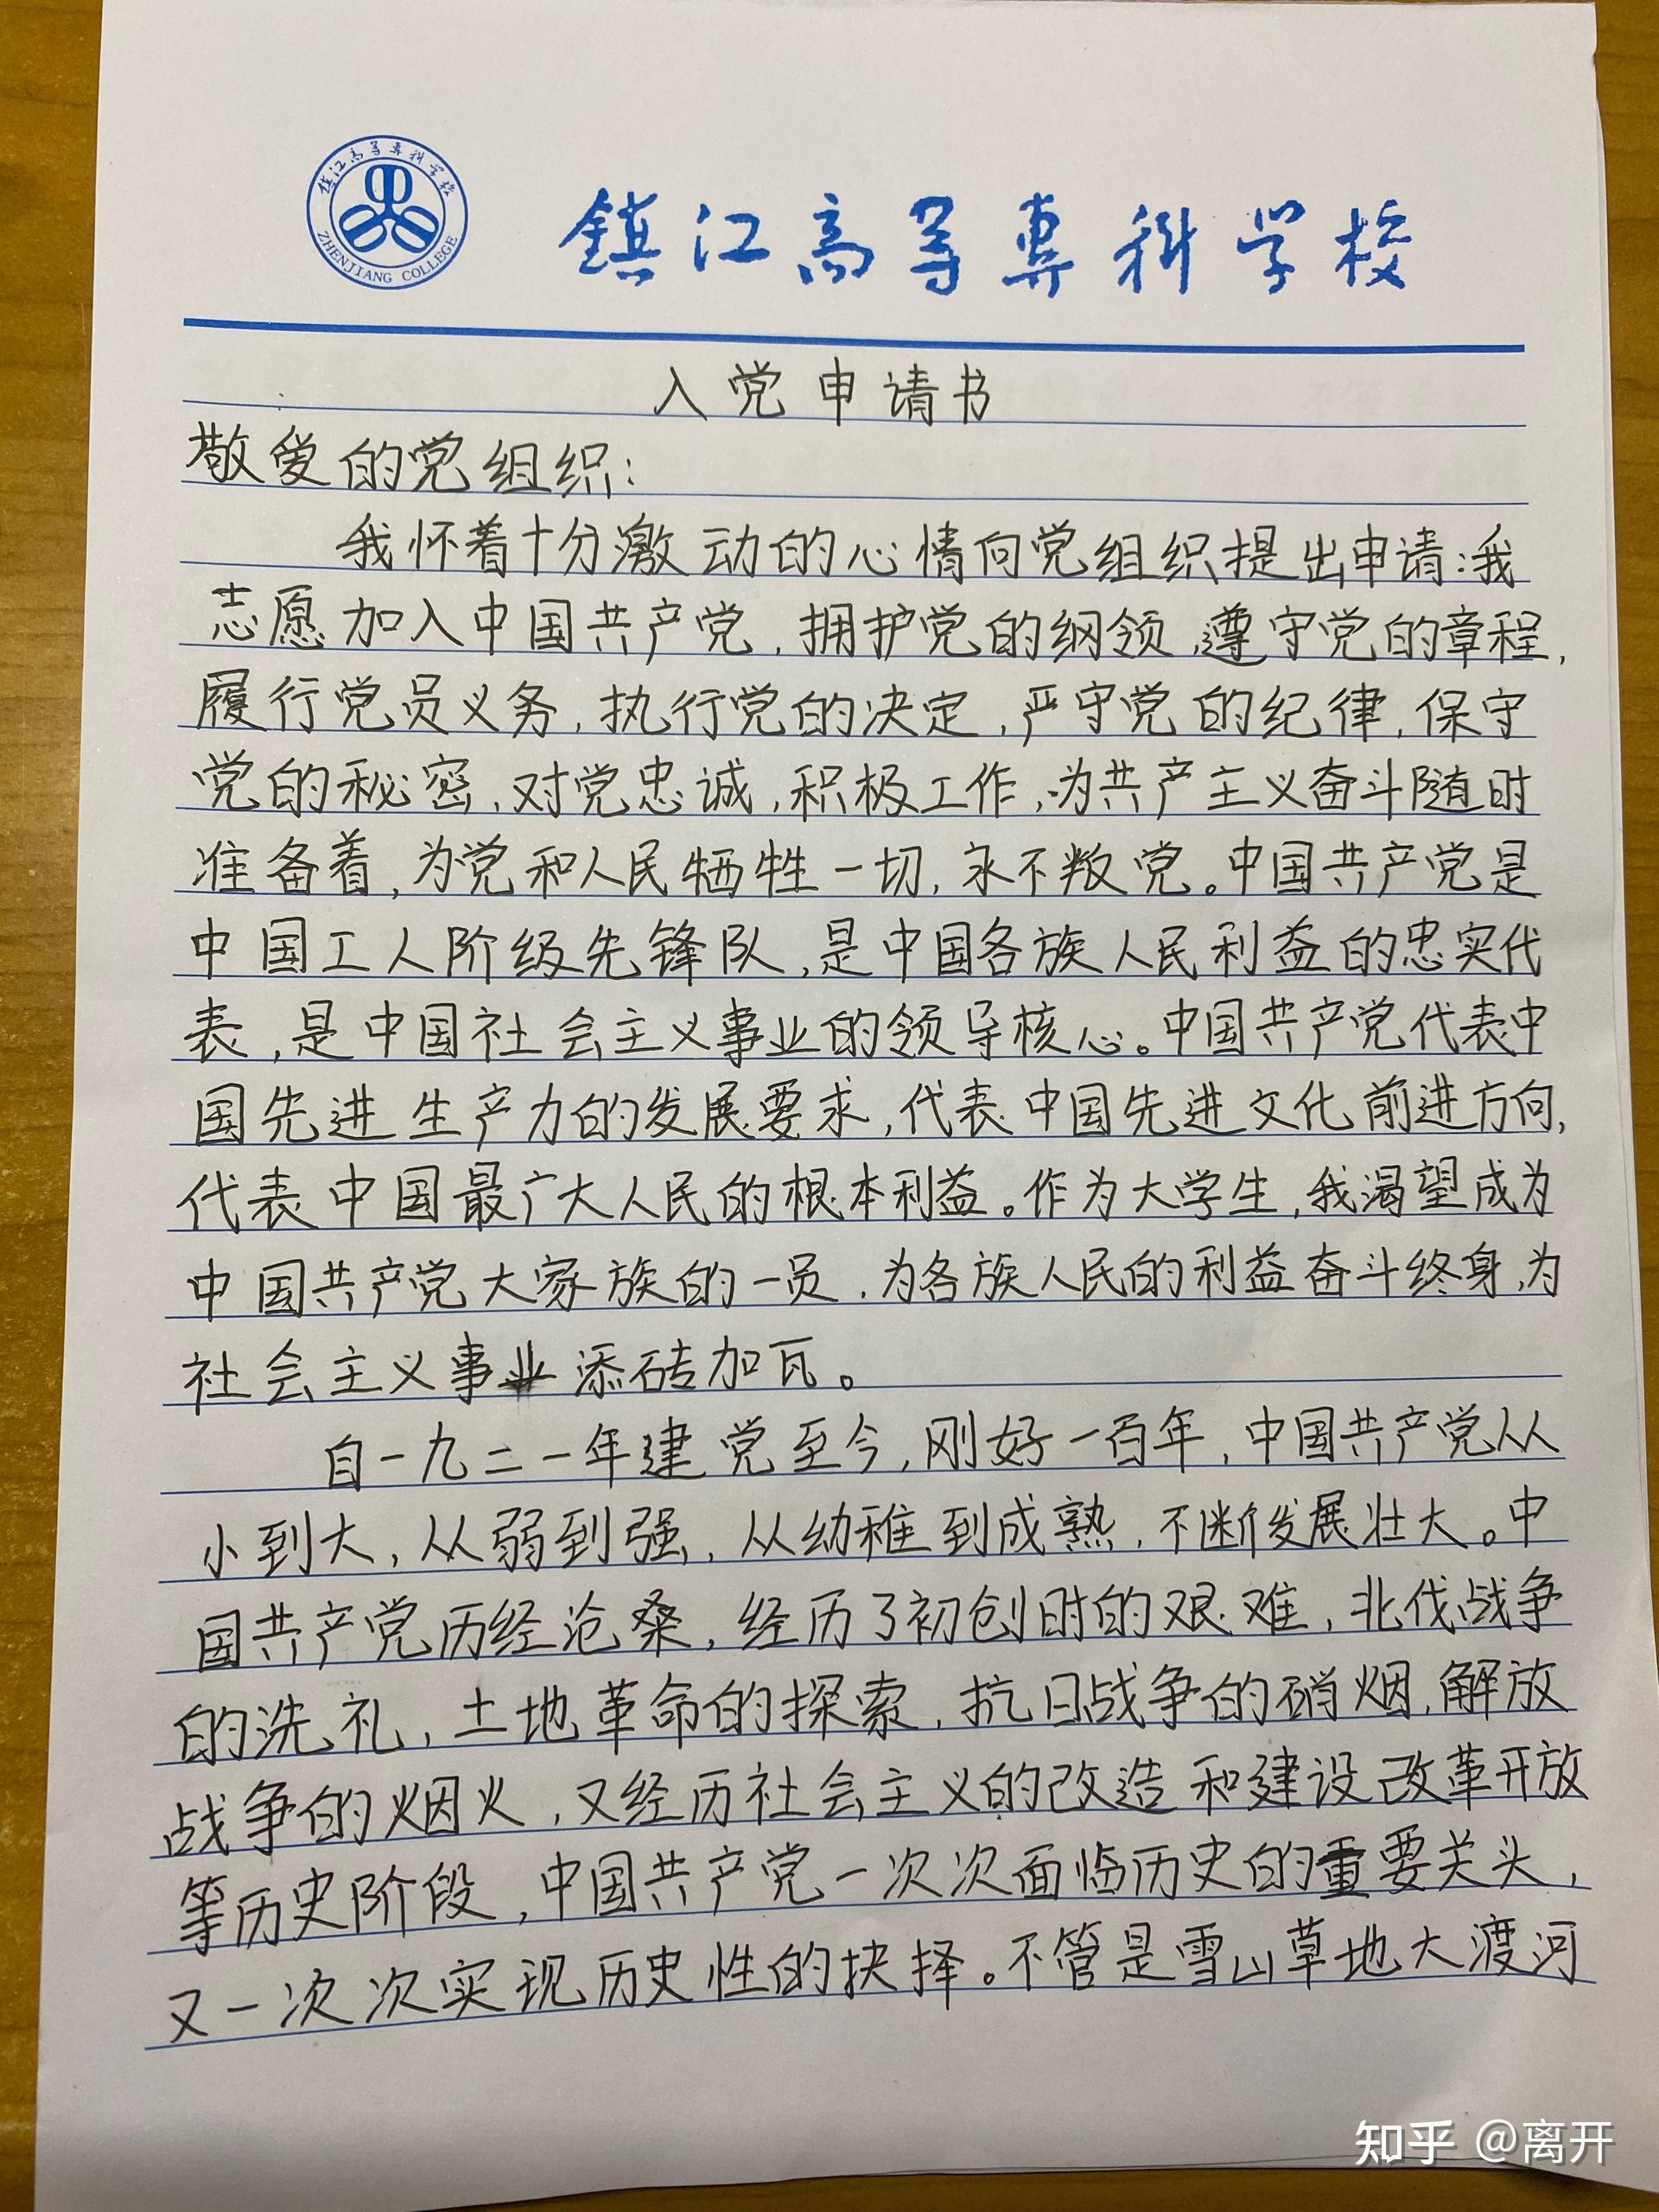 镇江高等专科学校
ZHENJIANG COLLEGE
鎮江高等專科学校
入党申请书
敬爱的党组织：
我怀着十分激动的心情向党组织提出申请：我
志愿加入中国共产党，拥护党的纲领，遵守党的章程，
履行党员义务，执行党的决定，严守党的纪律，保守
党的秘密，对党忠诚，积极工作，为共产主义奋斗随时
准备着，为党和人民牺牲一切，永不叛党。中国共产党是
中国工人阶级先锋队，是中国各族人民利益的忠实代
表，是中国社会主义事业的领导核心。中国共产党代表中
国先进生产力的发展要求，代表中国先进文化前进方向，
代表中国最广大人民的根本利益。作为大学生，我渴望成为
中国共产党大家族的一员，为各族人民的利益奋斗终身，为
社会主义事业添砖加瓦。
自一九二一年建党至今，刚好一百年，中国共产党从
小到大，从弱到强，从幼稚到成熟，不断发展壮大。中
国共产党历经沧桑，经历了初创时的艰难，北伐战争
的洗礼，土地革命的探索，抗日战争的硝烟，解放
战争的烟火，又经历社会主义的改造和建设改革开放
等历史阶段，中国共产党一次次面临历史的重要关头，
又一次次实现历史性的抉择。不管是雪山草地大渡河
知乎 @离开